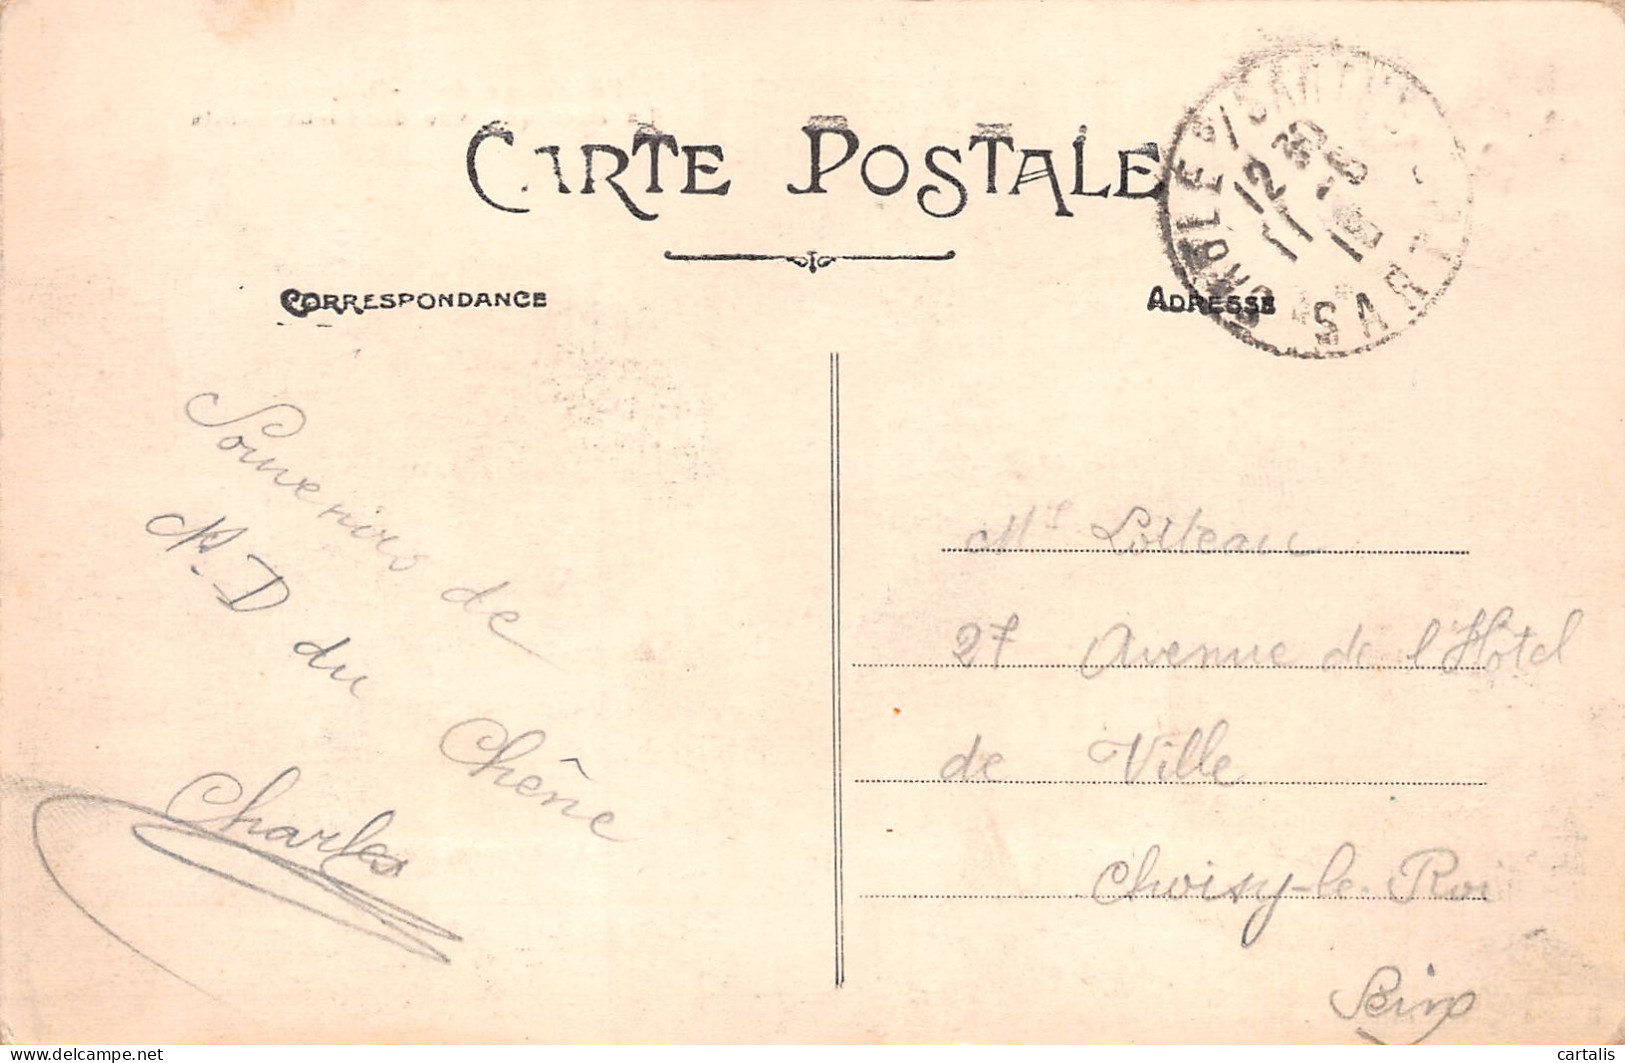 CARTE POSTALE
CORRESPONDANCE
ADRESSE
SABLÉ S/SARTHE
12 30
11 - 8
SARTHE
Souvenirs de
N.D du Chêne
Charles
Mr Loiteau
27 Avenue de l'Hôtel
de Ville
Choisy-le-Roi
Seine
cartalis
delcampe.net